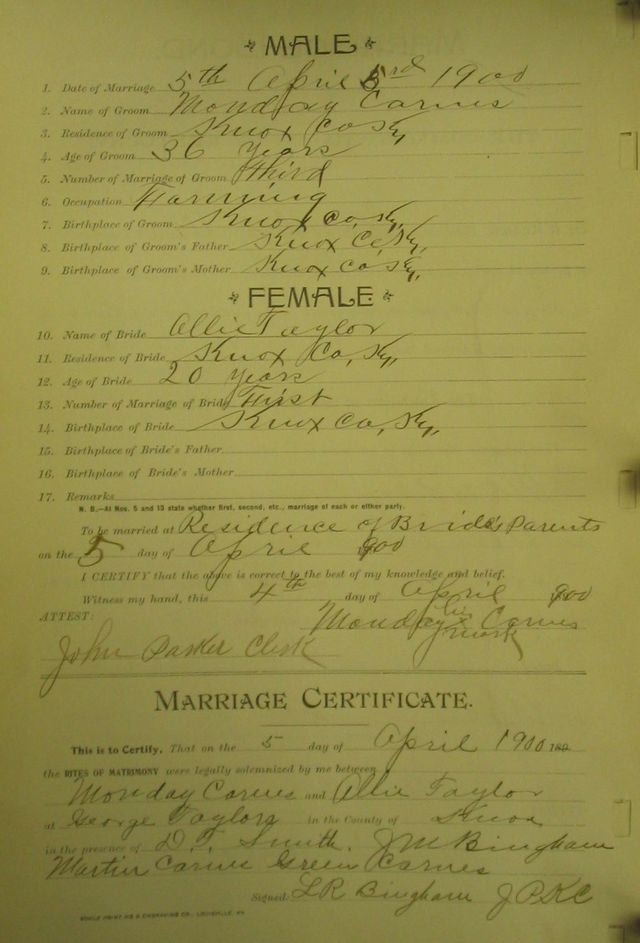 MALE
1. Date of Marriage 5th April 3rd 1900
2. Name of Groom Monday Carnes
3. Residence of Groom Knox Co Ky,
4. Age of Groom 36 Years
5. Number of Marriage of Groom third
6. Occupation Farming
7. Birthplace of Groom Knox Co, Ky,
8. Birthplace of Groom's Father Knox Co, Ky,
9. Birthplace of Groom's Mother Knox Co, Ky,
FEMALE
10. Name of Bride Ollie Taylor
11. Residence of Bride Knox Co, Ky,
12. Age of Bride 20 Years
13. Number of Marriage of Bride First
14. Birthplace of Bride Knox Co, Ky,
15. Birthplace of Bride's Father
16. Birthplace of Bride's Mother
17. Remarks
N. B.—At Nos. 5 and 13 state whether first, second, etc., marriage of each or either party.
To be married at Residence of Bride's Parents
on the 5 day of April 900
I CERTIFY that the above is correct to the best of my knowledge and belief.
Witness my hand, this 4th day of April 900
ATTEST: Monday his x mark Carnes
John Parker Clerk
MARRIAGE CERTIFICATE.
This is to Certify, That on the 5 day of April 1900 189
the RITES OF MATRIMONY were legally solemnized by me between
Monday Carnes and Ollie Taylor
at George Taylors in the County of Knox
in the presence of D. T. Smith. J M Bingham
Martin Carnes Green Carnes
Signed: L R Bingham J P K C